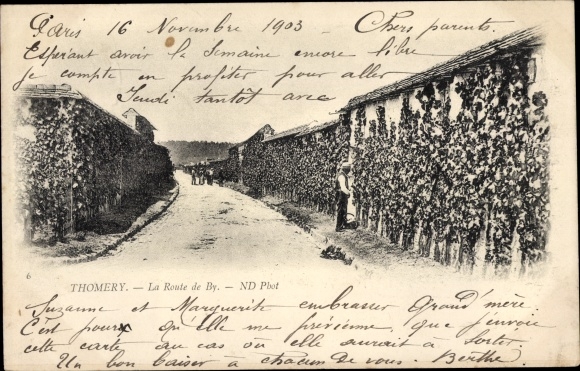 Paris 16 Novembre 1903 - Chers parents.
Espérant avoir la semaine encore libre
je compte en profiter pour aller
Jeudi tantôt avec
6
THOMERY. — La Route de By. — ND Phot
Suzanne et Marguerite embrasser Grand'mère.
C'est pour qu'elle me prévienne, que j'envoie
cette carte au cas où elle aurait à sortir.
Un bon baiser à chacun de vous. Berthe